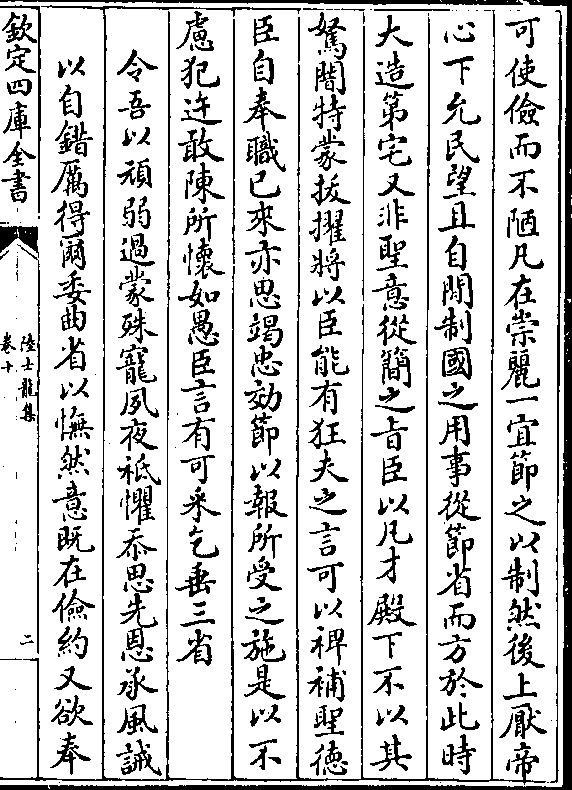 可使儉而不陋凡在崇麗一宜節之以制然後上厭帝
心下允民望且自閒制國之用事從節省而方於此時
大造第宅又非聖意從簡之旨臣以凡才殿下不以其
駑闇特蒙拔擢將以臣能有狂夫之言可以裨補聖徳
臣自奉職已來亦思竭忠効節以報所受之施是以不
慮犯迕敢陳所懷如愚臣言有可采乞垂三省
令吾以頑弱過蒙殊寵夙夜祗懼忝思先恩承風誡
以自錯厲得爾委曲省以憮然意既在儉約又欲奉
欽定四庫全書
陸士龍集
卷十
二